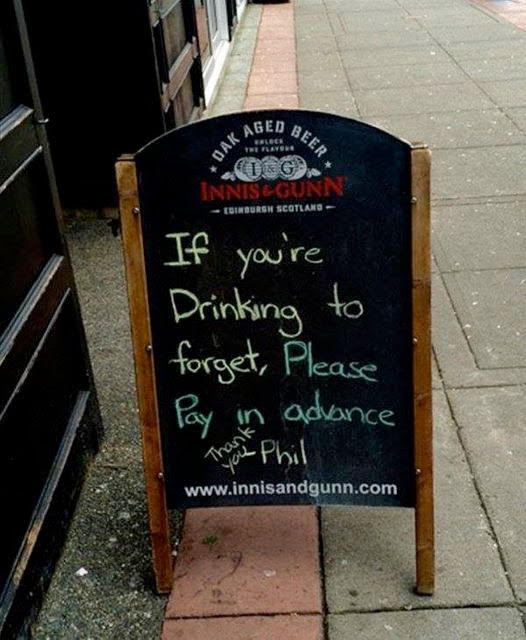 OAK AGED BEER
UNLOCK
THE FLAVOUR
I&G
INNIS & GUNN
EDINBURGH SCOTLAND
If you're
Drinking to
forget, Please
Pay in advance
Thank you Phil
www.innisandgunn.com